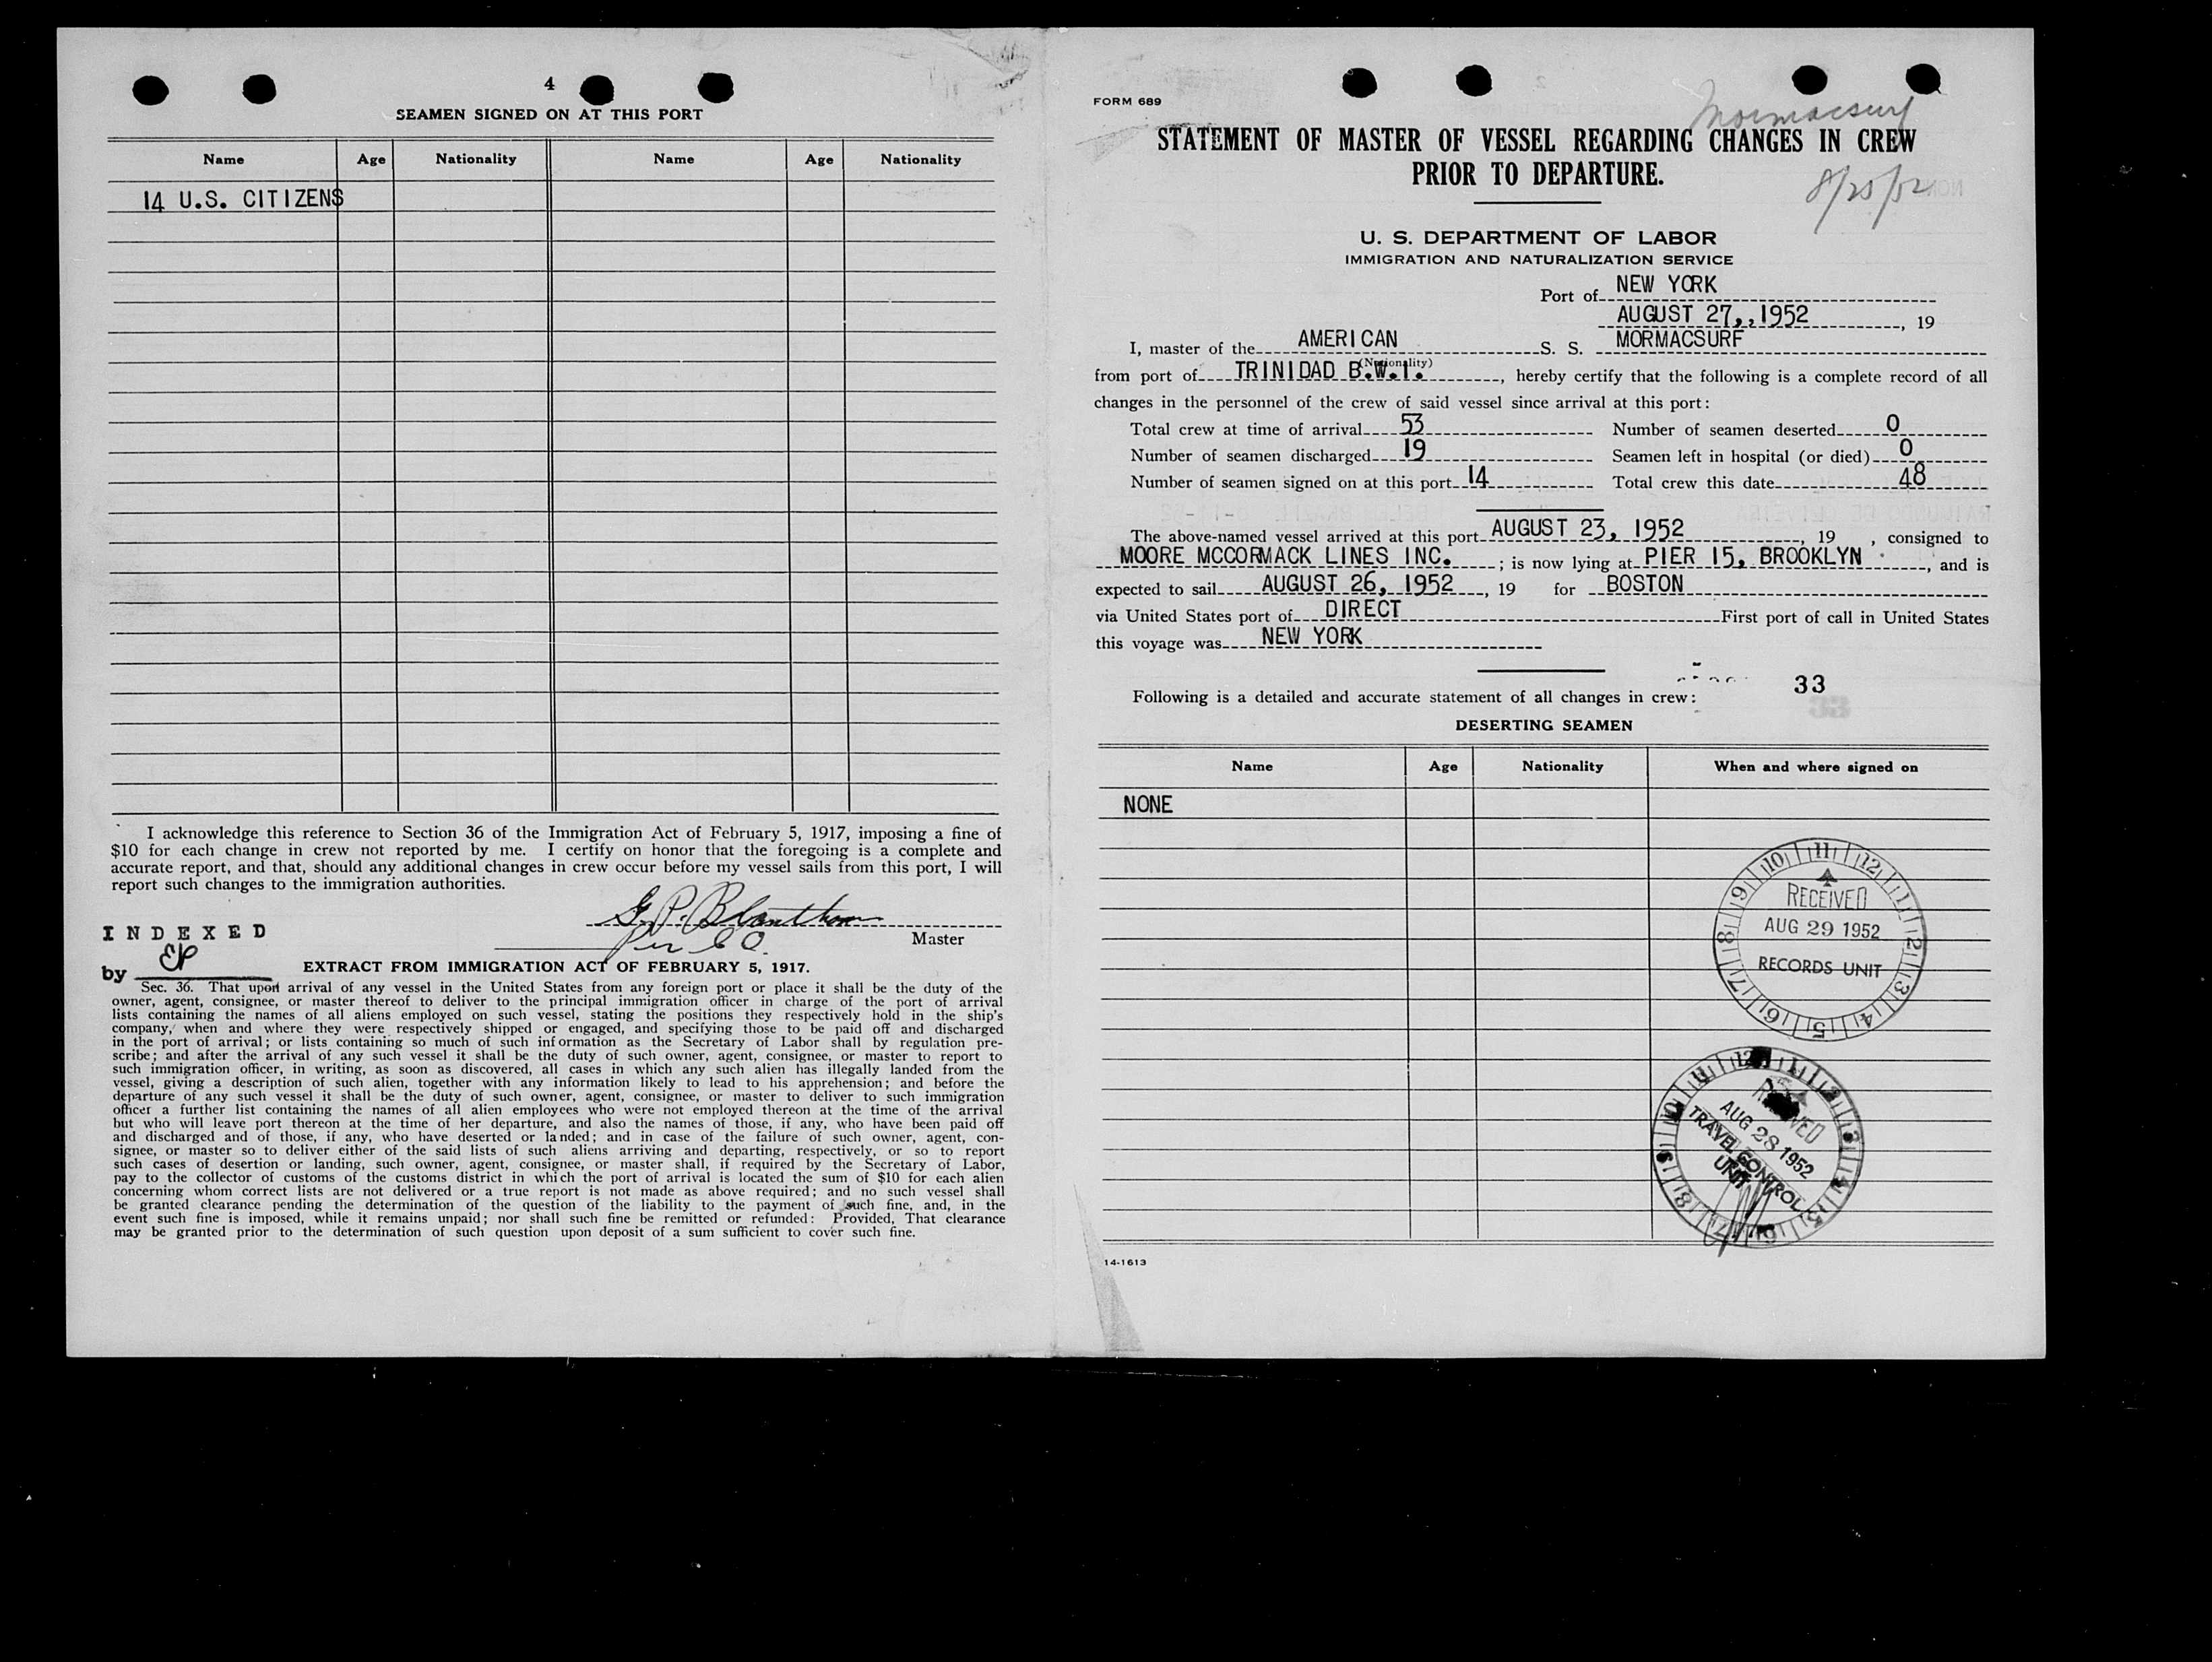 4
SEAMEN SIGNED ON AT THIS PORT
Name Age Nationality Name Age Nationality
14 U.S. CITIZENS
I acknowledge this reference to Section 36 of the Immigration Act of February 5, 1917, imposing a fine of
$10 for each change in crew not reported by me. I certify on honor that the foregoing is a complete and
accurate report, and that, should any additional changes in crew occur before my vessel sails from this port, I will
report such changes to the immigration authorities.
G. P.
Master
INDEXED
by EP
EXTRACT FROM IMMIGRATION ACT OF FEBRUARY 5, 1917.
Sec. 36. That upon arrival of any vessel in the United States from any foreign port or place it shall be the duty of the
owner, agent, consignee, or master thereof to deliver to the principal immigration officer in charge of the port of arrival
lists containing the names of all aliens employed on such vessel, stating the positions they respectively hold in the ship's
company, when and where they were respectively shipped or engaged, and specifying those to be paid off and discharged
in the port of arrival; or lists containing so much of such information as the Secretary of Labor shall by regulation pre-
scribe; and after the arrival of any such vessel it shall be the duty of such owner, agent, consignee, or master to report to
such immigration officer, in writing, as soon as discovered, all cases in which any such alien has illegally landed from the
vessel, giving a description of such alien, together with any information likely to lead to his apprehension; and before the
departure of any such vessel it shall be the duty of such owner, agent, consignee, or master to deliver to such immigration
officer a further list containing the names of all alien employees who were not employed thereon at the time of the arrival
but who will leave port thereon at the time of her departure, and also the names of those, if any, who have been paid off
and discharged and of those, if any, who have deserted or landed; and in case of the failure of such owner, agent, con-
signee, or master so to deliver either of the said lists of such aliens arriving and departing, respectively, or so to report
such cases of desertion or landing, such owner, agent, consignee, or master shall, if required by the Secretary of Labor,
pay to the collector of customs of the customs district in which the port of arrival is located the sum of $10 for each alien
concerning whom correct lists are not delivered or a true report is not made as above required; and no such vessel shall
be granted clearance pending the determination of the question of the liability to the payment of such fine, and, in the
event such fine is imposed, while it remains unpaid; nor shall such fine be remitted or refunded: Provided, That clearance
may be granted prior to the determination of such question upon deposit of a sum sufficient to cover such fine.
FORM 689
Mormacsurf
STATEMENT OF MASTER OF VESSEL REGARDING CHANGES IN CREW
PRIOR TO DEPARTURE.
U. S. DEPARTMENT OF LABOR
IMMIGRATION AND NATURALIZATION SERVICE
Port of NEW YORK
AUGUST 27,,1952, 19
I, master of the AMERICAN S. S. MORMACSURF
(Nationality)
from port of TRINIDAD B.W.I., hereby certify that the following is a complete record of all
changes in the personnel of the crew of said vessel since arrival at this port:
Total crew at time of arrival 53 Number of seamen deserted 0
Number of seamen discharged 19 Seamen left in hospital (or died) 0
Number of seamen signed on at this port 14 Total crew this date 48
The above-named vessel arrived at this port AUGUST 23, 1952, 19 , consigned to
MOORE MCCORMACK LINES INC.; is now lying at PIER 15, BROOKLYN, and is
expected to sail AUGUST 26, 1952, 19 for BOSTON
via United States port of DIRECT First port of call in United States
this voyage was NEW YORK
33
Following is a detailed and accurate statement of all changes in crew:
DESERTING SEAMEN
Name Age Nationality When and where signed on
NONE
RECEIVED
AUG 29 1952
RECORDS UNIT
RECEIVED
AUG 28 1952
TRAVEL CONTROL
UNIT
14-1613